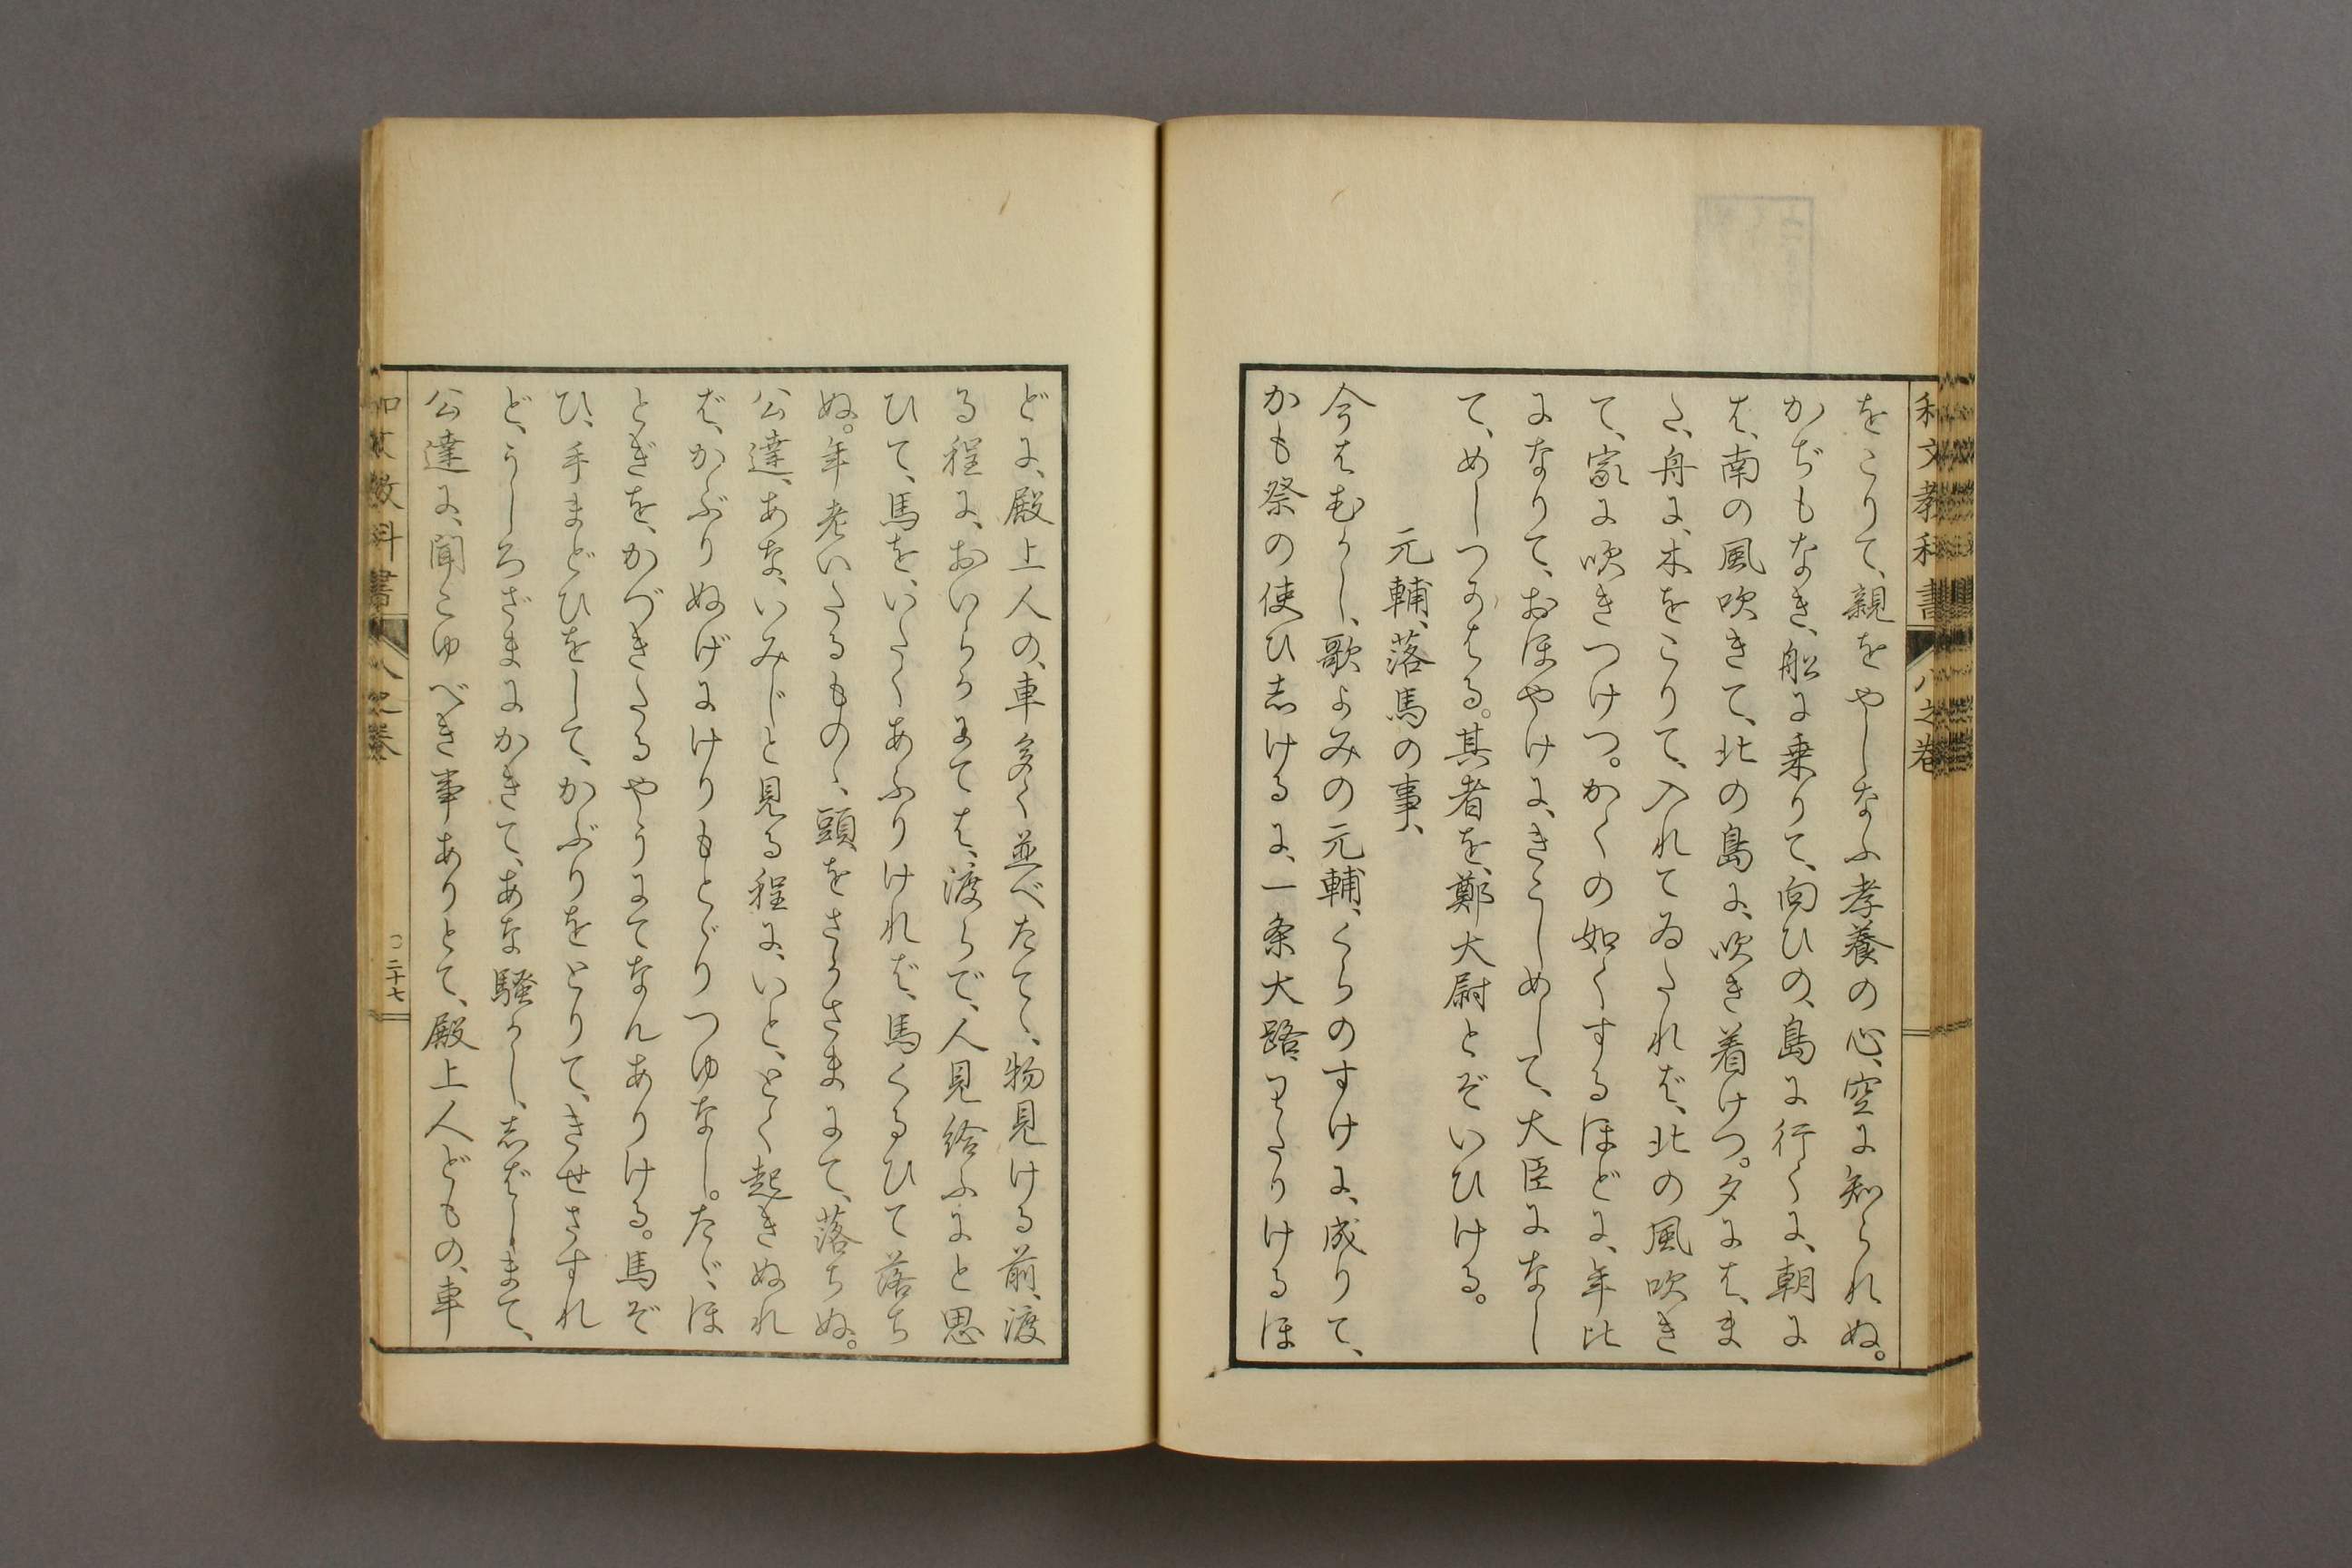 和文教科書 八之巻
をこりて、親をやしなふ孝養の心、空に知られぬ。
かぢもなき、船に乗りて、向ひの、島に行くに、朝に
は、南の風吹きて、北の島に、吹き着けつ。夕には、ま
た、舟に、木をこりて、入れてゐたれば、北の風吹き
て、家に吹きつけつ。かくの如くするほどに、年比
になりて、おほやけに、きこしめして、大臣になし
て、めしつかはる。其者を、鄭大尉とぞいひける。
元輔、落馬の事、
今はむかし、歌よみの元輔、くらのすけに、成りて、
かも祭の使ひ志けるに、一条大路、わたりけるほ
どに、殿上人の、車多く並べたてゝ、物見ける前、渡
る程に、おいらかにては、渡らで、人見給ふにと思
ひて、馬を、いたくあふりければ、馬くるひて落ち
ぬ。年老いたるものゝ、頭をさかさまにて、落ちぬ。
公達、あな、いみじと見る程に、いと、とく起きぬれ
ば、かぶりぬげにけりもとゞりつゆなし。たゞ、ほ
とぎを、かづきたるやうにてなんありける。馬ぞ
ひ、手まどひをして、かぶりをとりて、きせさすれ
ど、うしろざまにかきて、あな騒かし、志ばしまて、
公達に、聞こゆべき事ありとて、殿上人どもの、車
和文教科書 八之巻 〇二十七